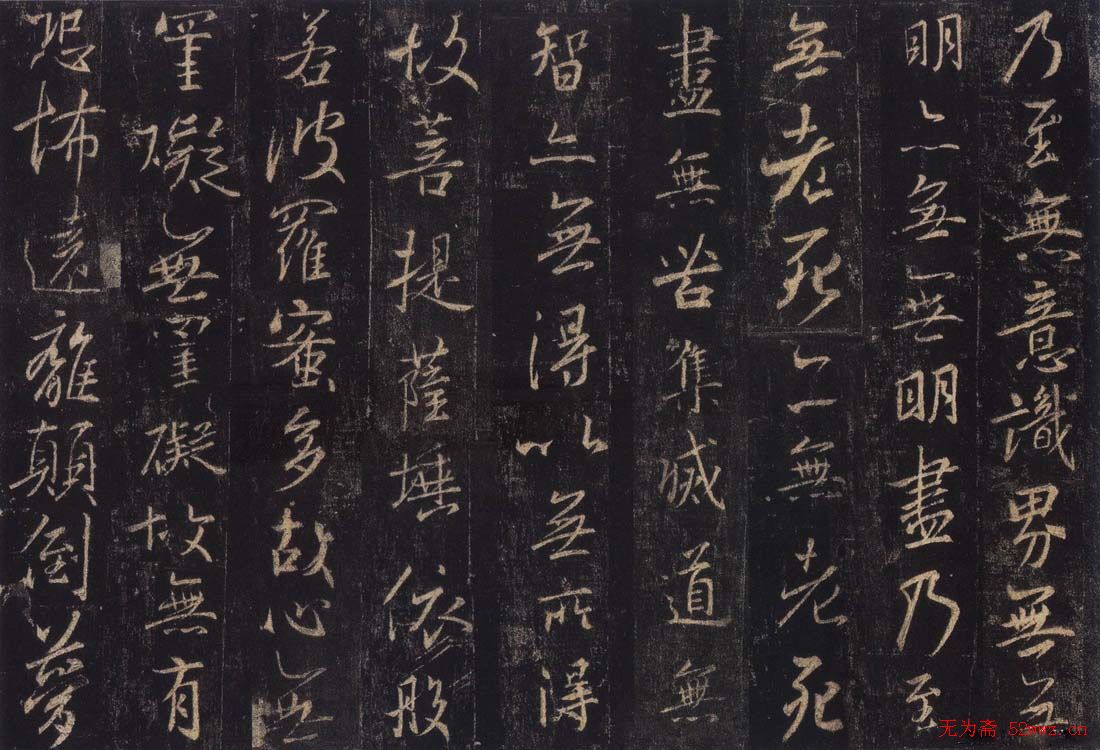 乃至無意識界無無
明亦無無明盡乃至
無老死亦無老死
盡無苦集滅道無
智亦無得以無所得
故菩提薩埵依般
若波羅蜜多故心無
罣礙無罣礙故無有
恐怖遠離顛倒夢
无为斋 52wwz.cn